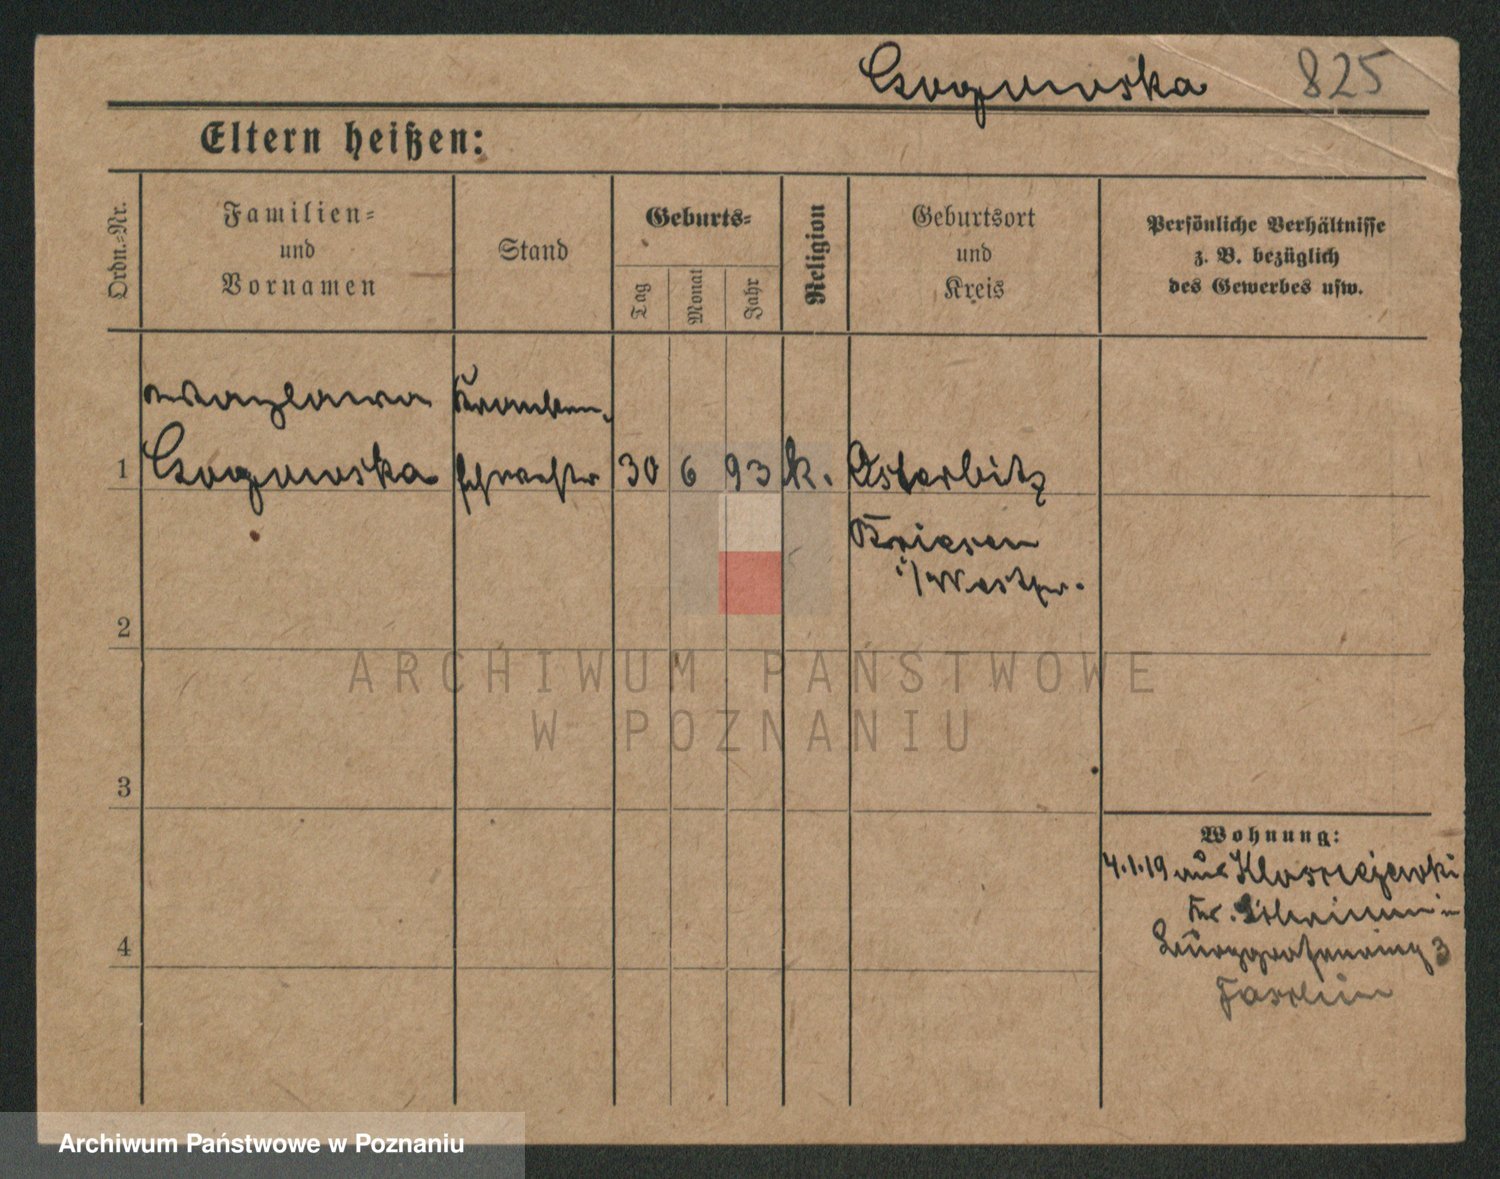 825
Eltern heißen:
Ordn.-Nr.
Familien-
und
Vornamen
Stand
Geburts-
Tag
Monat
Jahr
Religion
Geburtsort
und
Kreis
Persönliche Verhältnisse
z. B. bezüglich
des Gewerbes usw.
Kranken-
1
schwester
30
6
93
k.
Osterbitz
Briesen
i/Westpr.
2
ARCHIWUM PAŃSTWOWE
W POZNANIU
3
Wohnung:
4.1.19 aus
Kr. Schrimm in
4
Burggrafenring 3
Archiwum Państwowe w Poznaniu